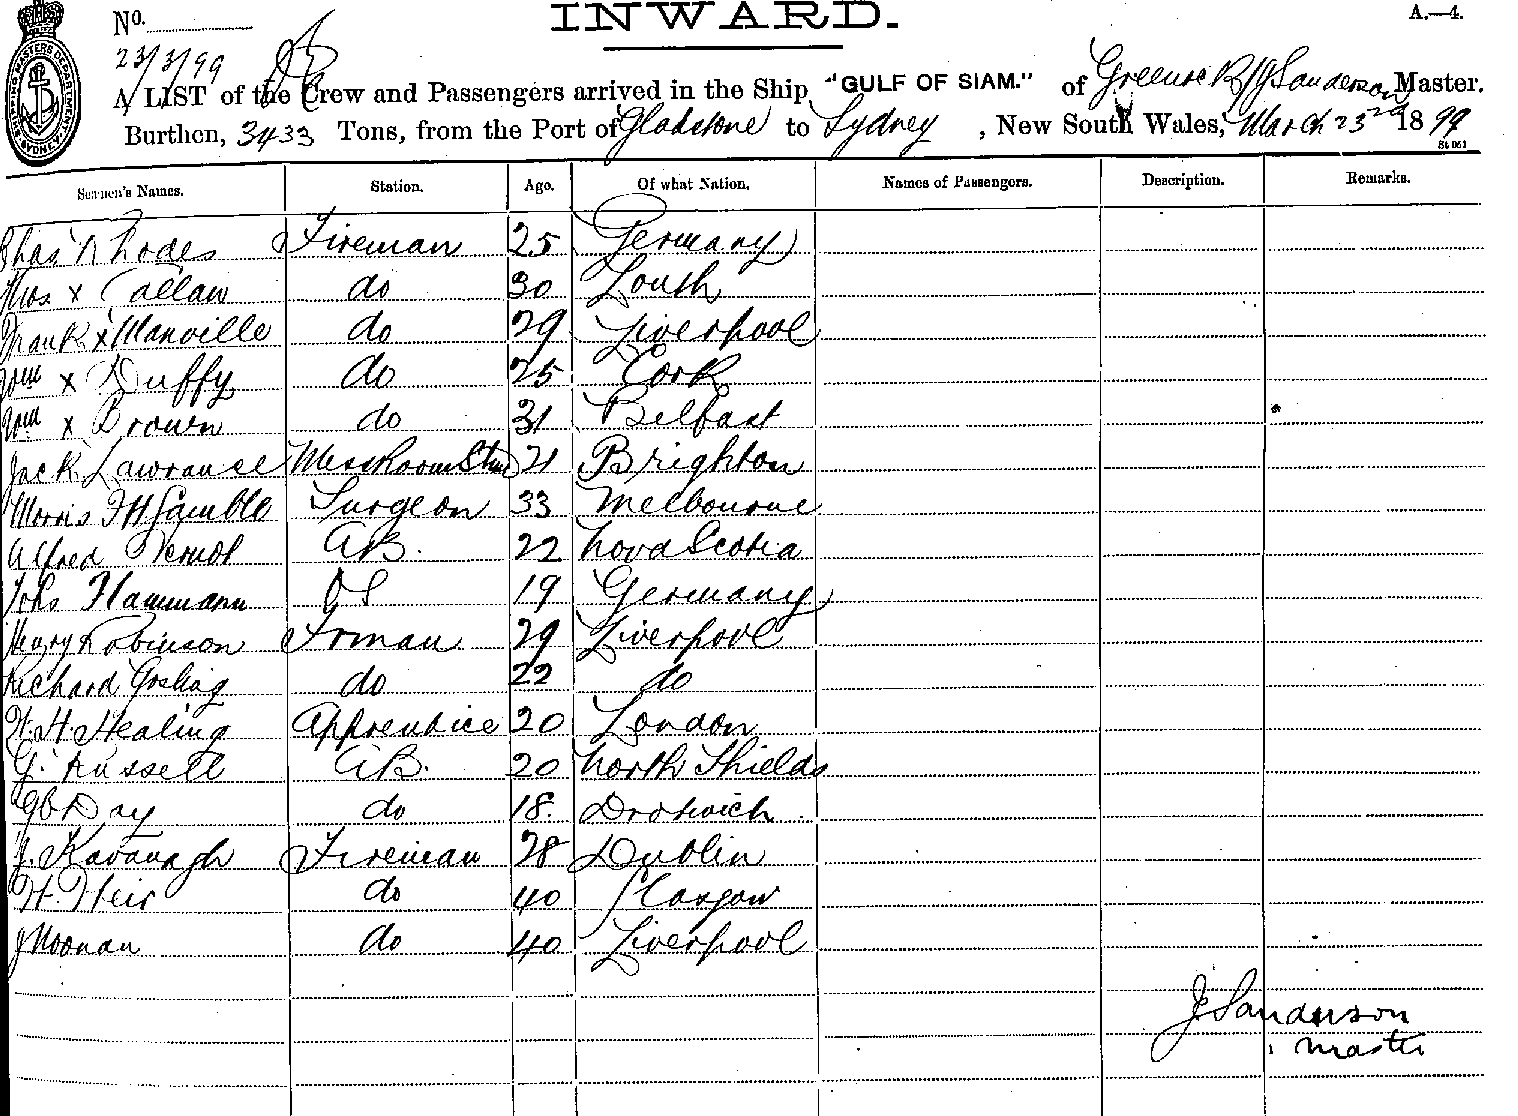 INWARD.
A.—4.
No.
23/3/99
SHIPPING MASTERS DEPARTMENT SYDNEY
A LIST of the Crew and Passengers arrived in the Ship "GULF OF SIAM." of Greenock J Sanderson Master.
Burthen, 3433 Tons, from the Port of Gladstone to Sydney, New South Wales, March 23rd 1899
St 061
Seamen's Names. Station. Age. Of what Nation. Names of Passengers. Description. Remarks.
Chas Rhodes Fireman 25 Germany
Thos x Callan do 30 Louth
Frank x Manville do 29 Liverpool
Wm x Duffy do 25 Cork
Wm x Brown do 31 Belfast
Jack Lawranse Mess Room Stwd 21 Brighton
Morris FH Gamble Surgeon 33 Melbourne
Alfred AB. 22 Nova Scotia
Johs Hammann OS 19 Germany
Henry Robinson Frman 29 Liverpool
Richard Gosling do 22 do
W. H. Healing Apprentice 20 London
G. Russell AB. 20 North Shields
Day do 18. Drotwich
J. Kavanagh Fireman 28 Dublin
W. Weir do 40 Glasgow
J Noonan do 40 Liverpool
J Sanderson
Master